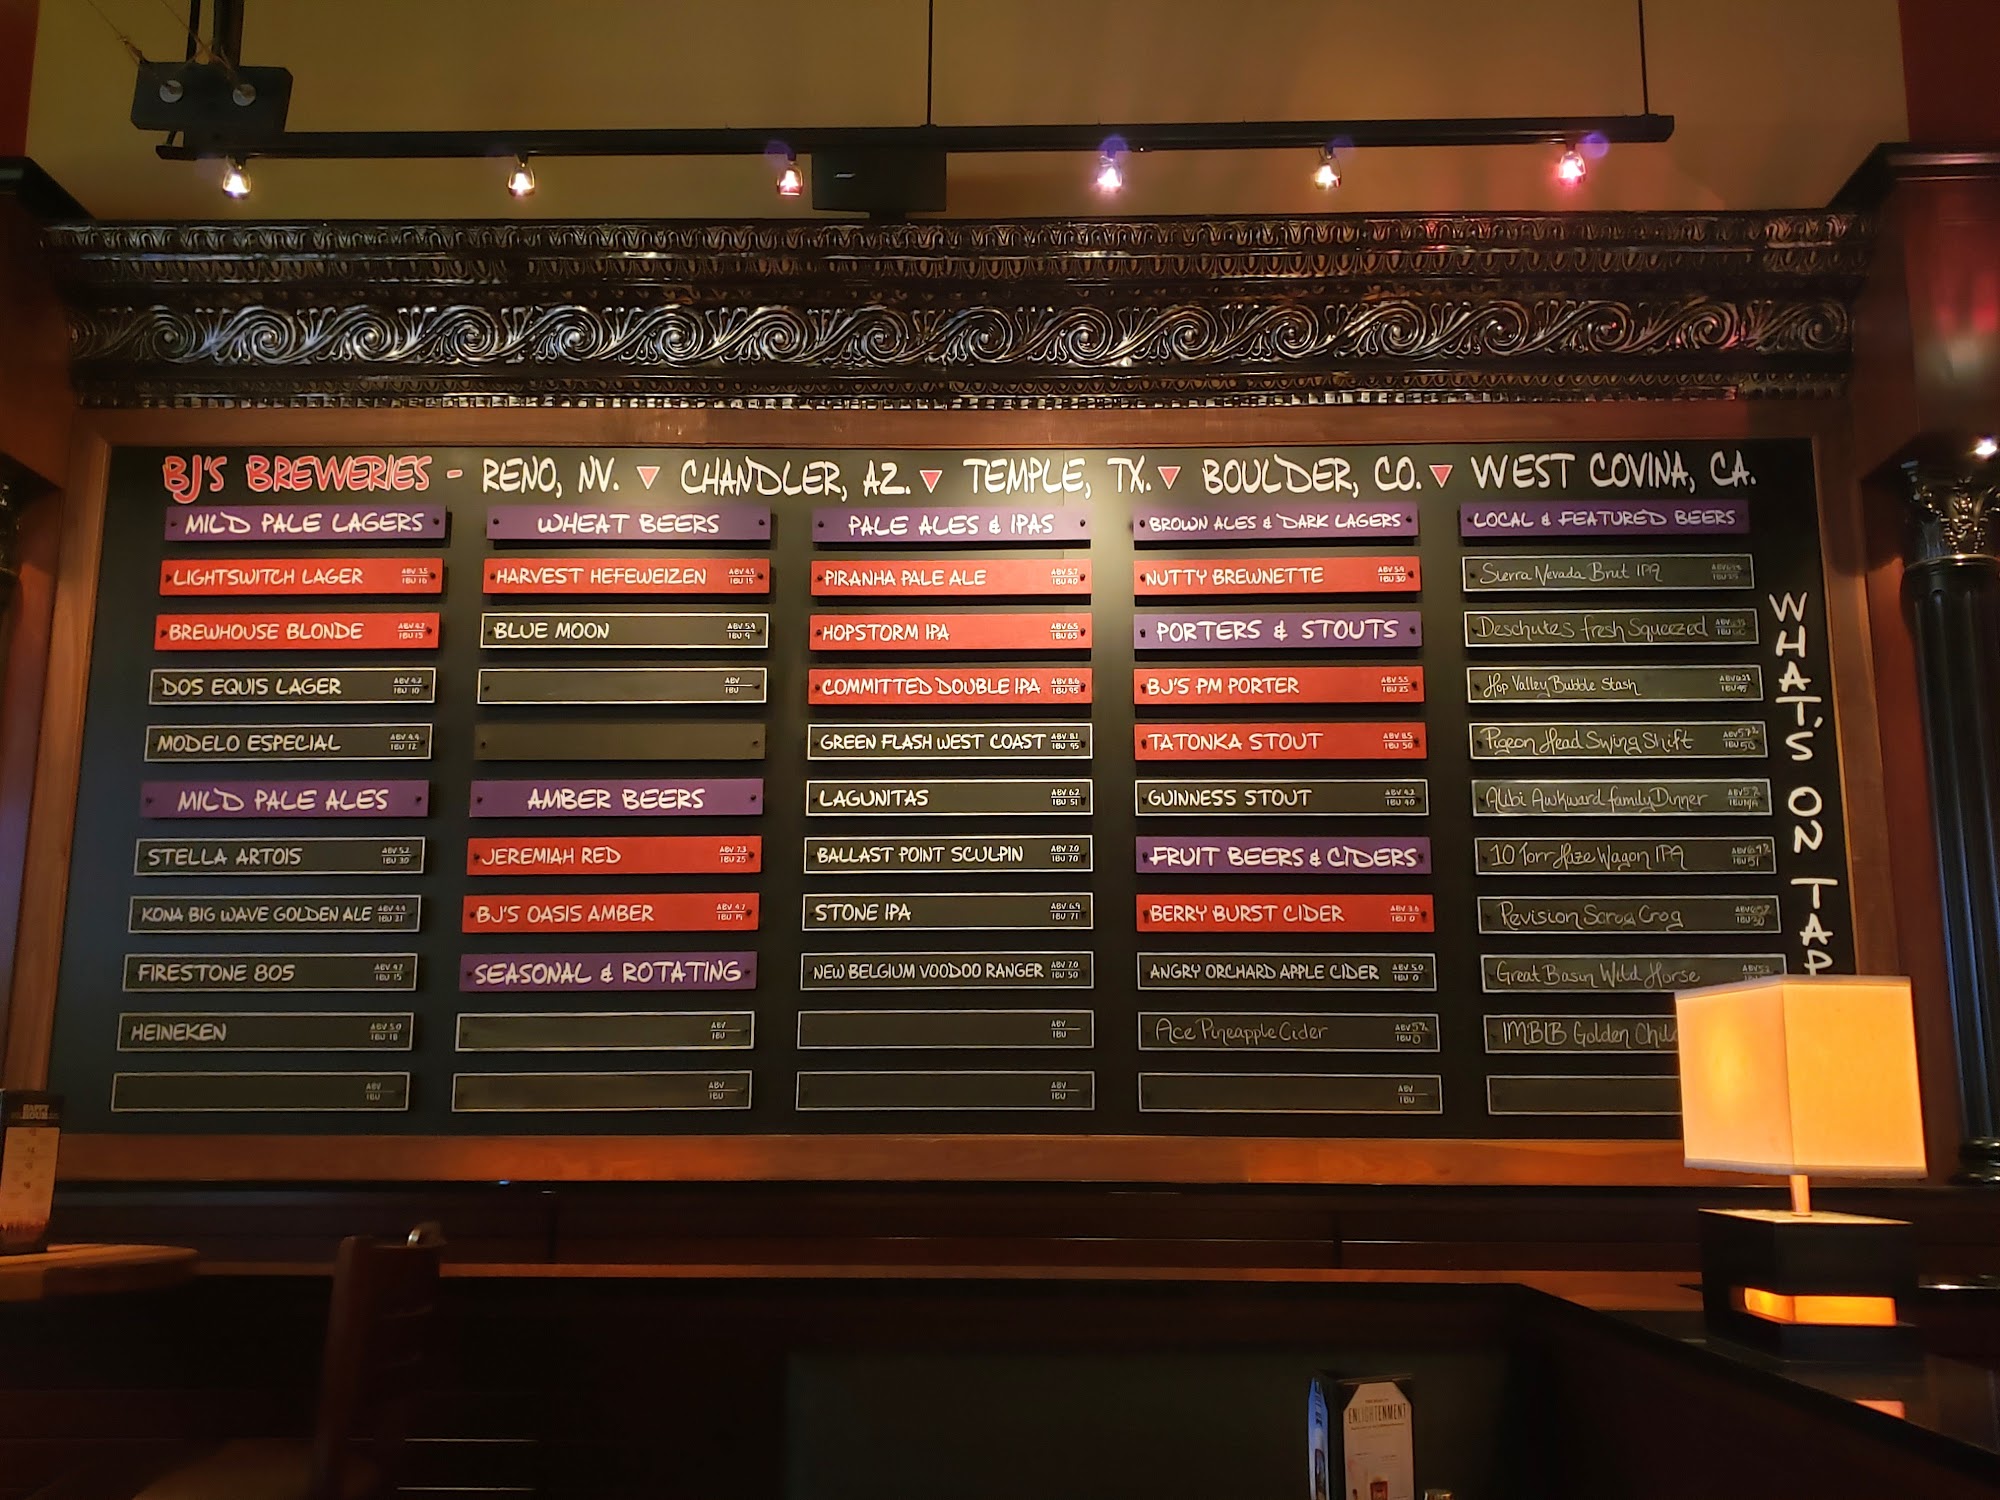 BJ'S BREWERIES - RENO, NV. CHANDLER, AZ. TEMPLE, TX. BOULDER, CO. WEST COVINA, CA.
MILD PALE LAGERS
LIGHTSWITCH LAGER ABV 3.5 IBU 16
BREWHOUSE BLONDE ABV 4.7 IBU 15
DOS EQUIS LAGER ABV 4.2 IBU 10
MODELO ESPECIAL ABV 4.4 IBU 12
MILD PALE ALES
STELLA ARTOIS ABV 5.2 IBU 30
KONA BIG WAVE GOLDEN ALE ABV 4.4 IBU 21
FIRESTONE 805 ABV 4.7 IBU 15
HEINEKEN ABV 5.0 IBU 18
ABV IBU
WHEAT BEERS
HARVEST HEFEWEIZEN ABV 4.9 IBU 15
BLUE MOON ABV 5.4 IBU 9
ABV IBU
AMBER BEERS
JEREMIAH RED ABV 7.3 IBU 25
BJ'S OASIS AMBER ABV 4.7 IBU 19
SEASONAL & ROTATING
ABV IBU
ABV IBU
PALE ALES & IPAS
PIRANHA PALE ALE ABV 5.7 IBU 40
HOPSTORM IPA ABV 6.5 IBU 65
COMMITTED DOUBLE IPA ABV 8.6 IBU 95
GREEN FLASH WEST COAST ABV 8.1 IBU 95
LAGUNITAS ABV 6.2 IBU 51
BALLAST POINT SCULPIN ABV 7.0 IBU 70
STONE IPA ABV 6.9 IBU 71
NEW BELGIUM VOODOO RANGER ABV 7.0 IBU 50
ABV IBU
ABV IBU
BROWN ALES & DARK LAGERS
NUTTY BREWNETTE ABV 5.9 IBU 30
PORTERS & STOUTS
BJ'S PM PORTER ABV 5.5 IBU 25
TATONKA STOUT ABV 8.5 IBU 50
GUINNESS STOUT ABV 4.2 IBU 40
FRUIT BEERS & CIDERS
BERRY BURST CIDER ABV IBU 0
ANGRY ORCHARD APPLE CIDER ABV 5.0 IBU 0
Ace Pineapple Cider ABV 5% IBU 0
ABV IBU
LOCAL & FEATURED BEERS
Sierra Nevada Brut IPA ABV IBU
Deschutes Fresh Squeezed ABV IBU
Hop Valley Bubble Stash ABV IBU
Pigeon Head Swing Shift ABV IBU 50
Alibi Awkward Family Dinner ABV IBU N/A
10 Torr Haze Wagon IPA ABV IBU 51
Revision Scrog Crog ABV IBU 30
Great Basin Wild Horse ABV
IMBIB Golden Chil
WHAT'S ON TAP
HAPPY HOUR
ENLIGHTENMENT